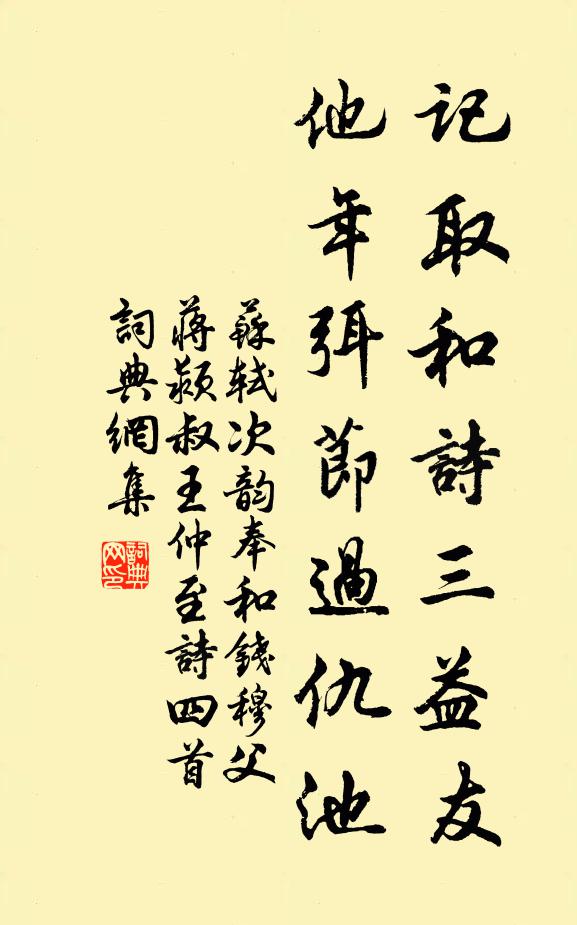 记取和詩三益友
他年弭節過仇池
蘇軾次韵奉和錢穆父
蔣颍叔王仲至詩四首
詞典網集
詞典网印